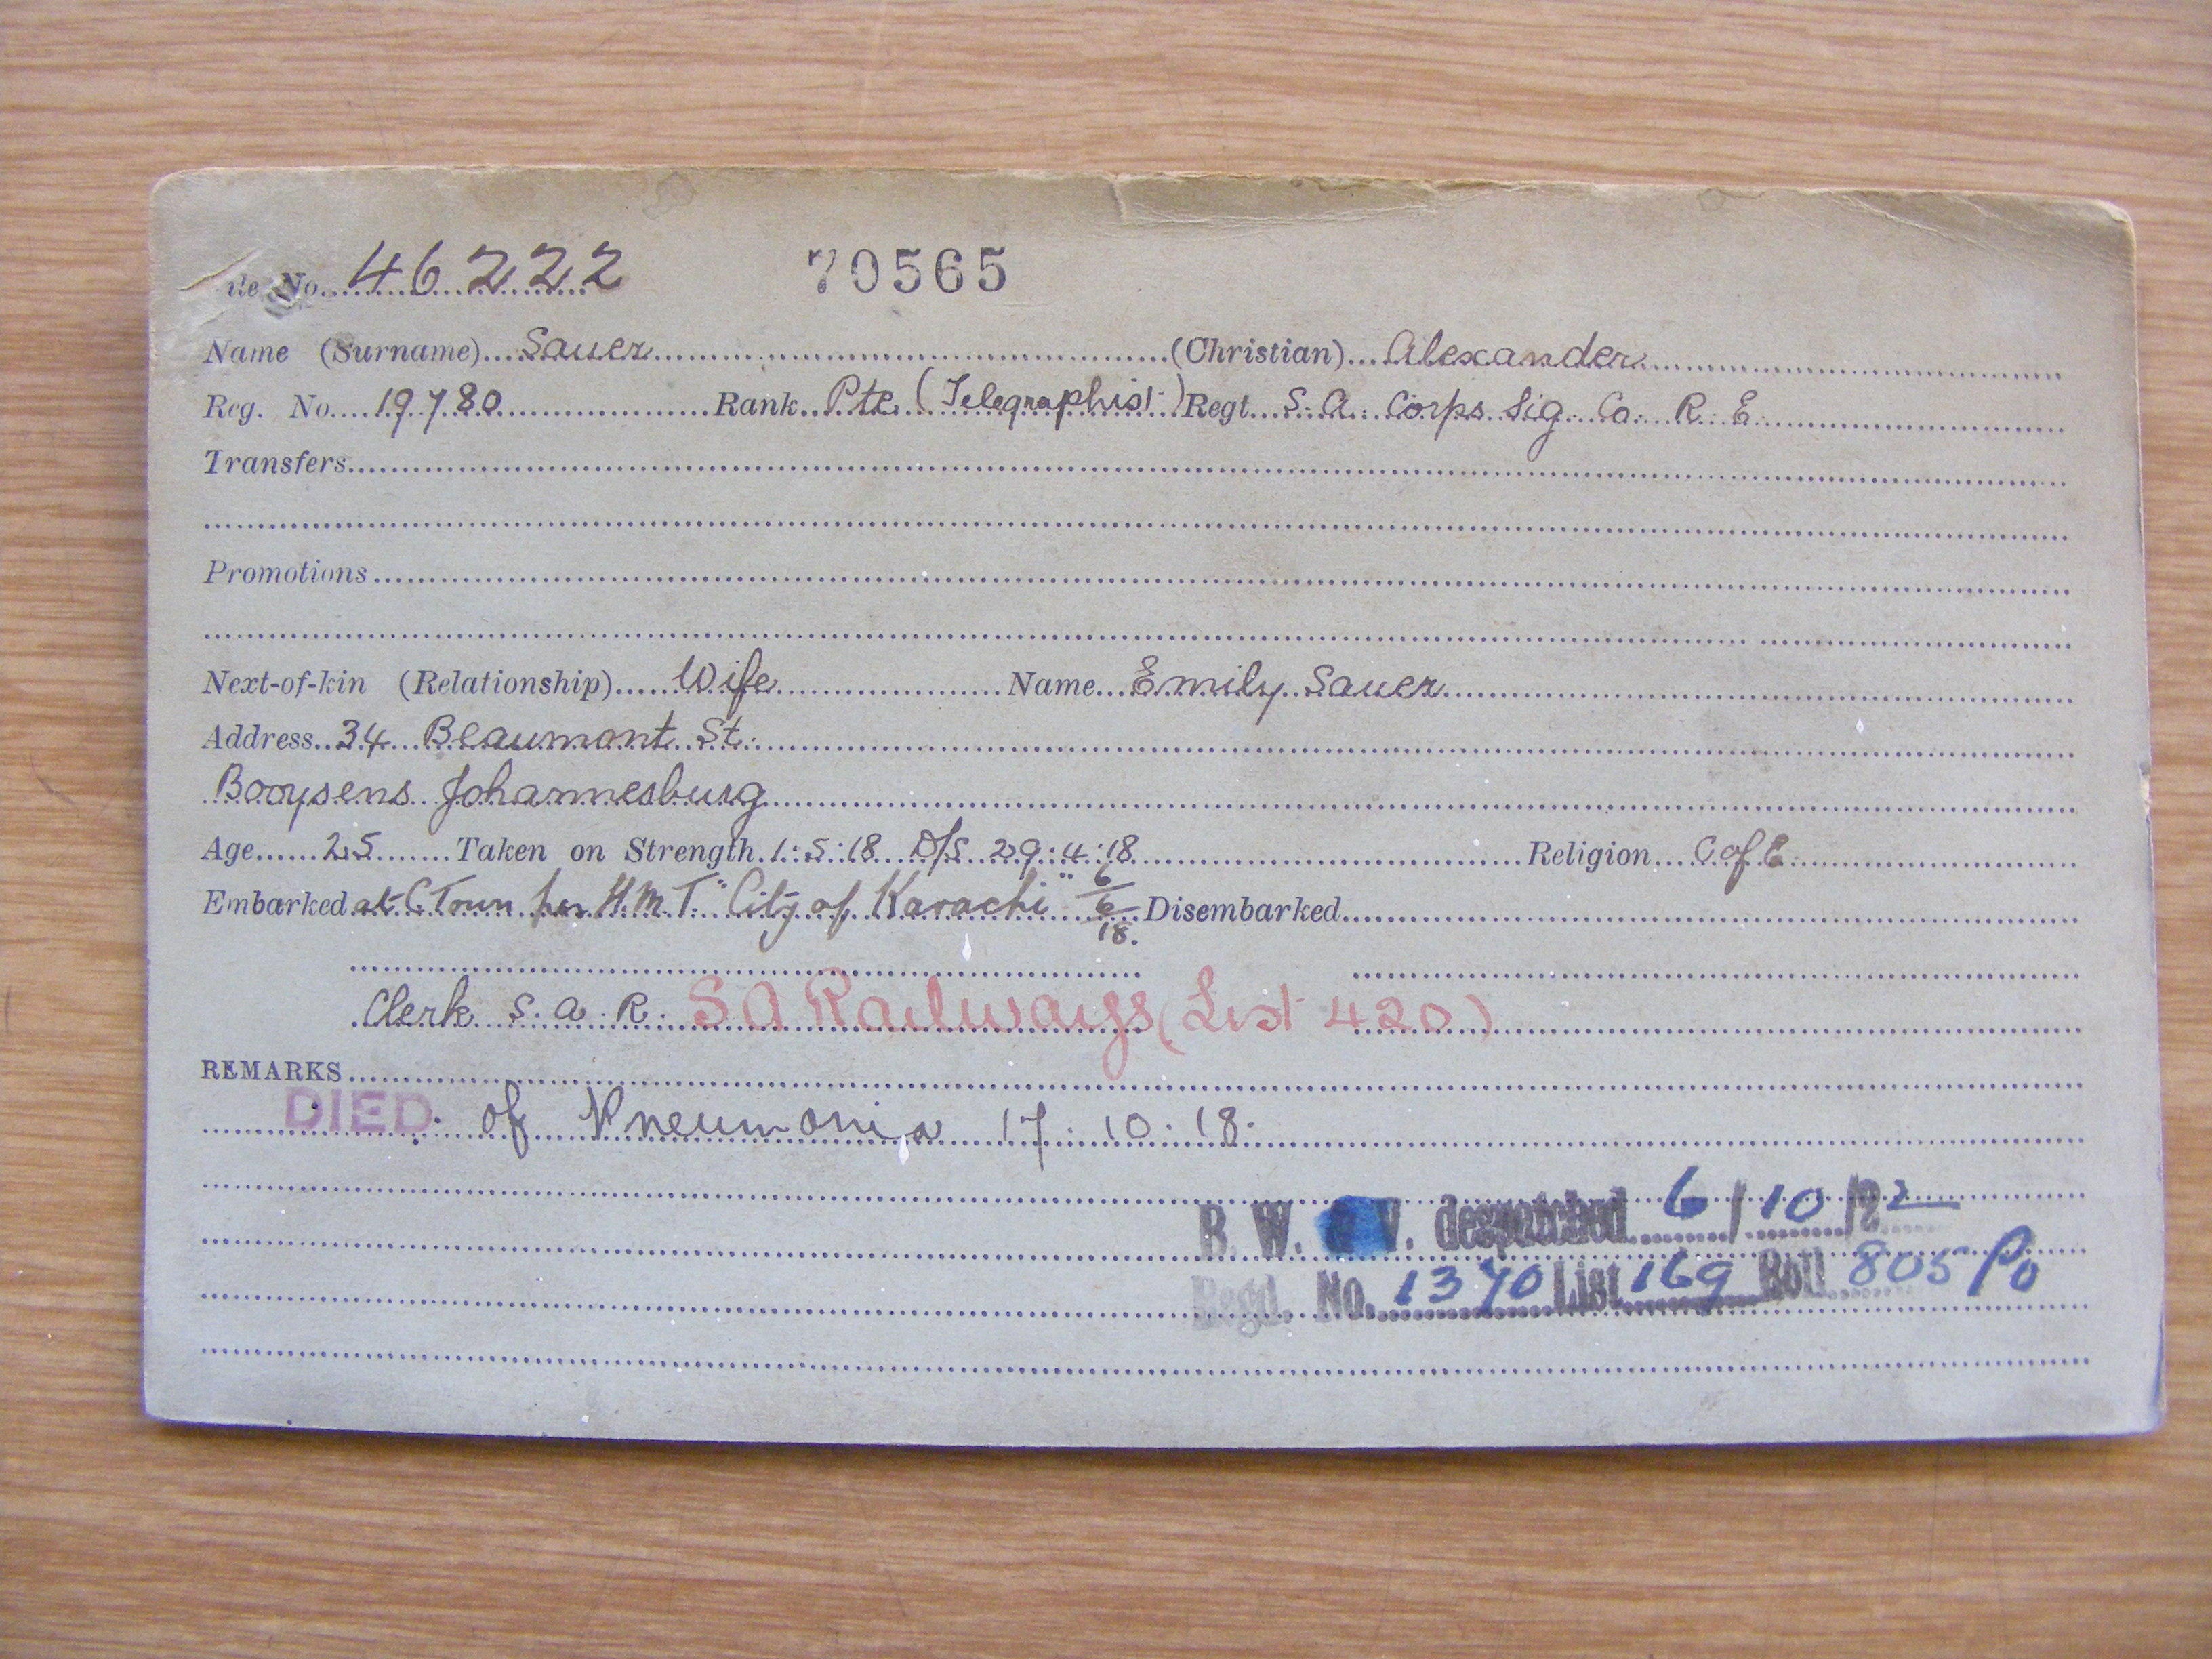 ile No. 46222 70565
Name (Surname) Sauer (Christian) Alexander
Reg. No. 19780 Rank Pte (Telegraphist) Regt S. A. Corps Sig. Co. R. E.
Transfers
Promotions
Next-of-kin (Relationship) Wife Name Emily Sauer
Address 34 Beaumont St.
Booysens Johannesburg
Age 25 Taken on Strength 1.5.18 D/S 29.4.18 Religion C of E
Embarked at C Town per H.M.T. "City of Karachi" 6/6/18. Disembarked
Clerk S. A. R. S A Railways (List 420)
REMARKS
DIED of Pneumonia 17.10.18.
B. W. V. despatched 6/10/22
Regd. No. 1370 List 169 Roll 805 Po